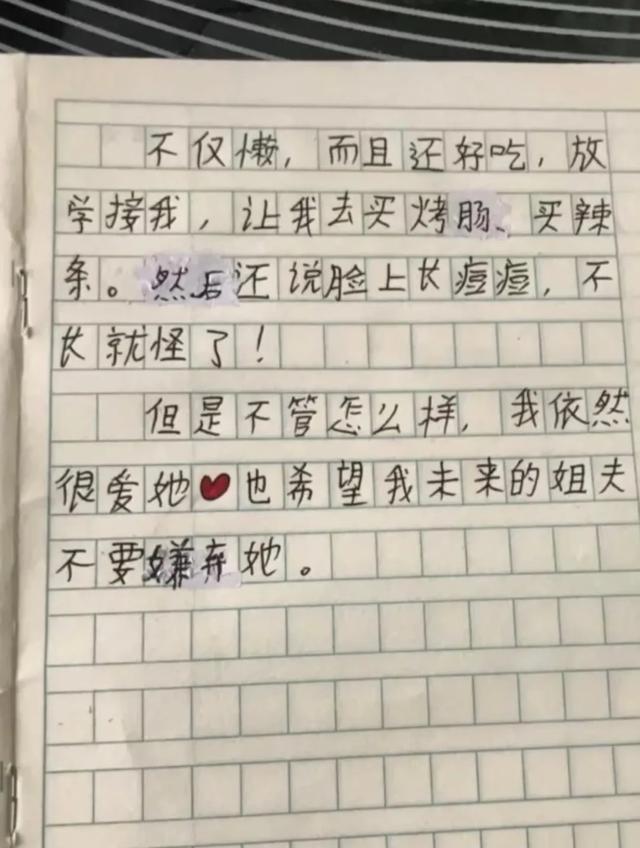 不仅懒，而且还好吃，放
学接我，让我去买烤肠、买辣
条。然后还说脸上长痘痘，不
长就怪了！
但是不管怎么样，我依然
很爱她❤也希望我未来的姐夫
不要嫌弃她。